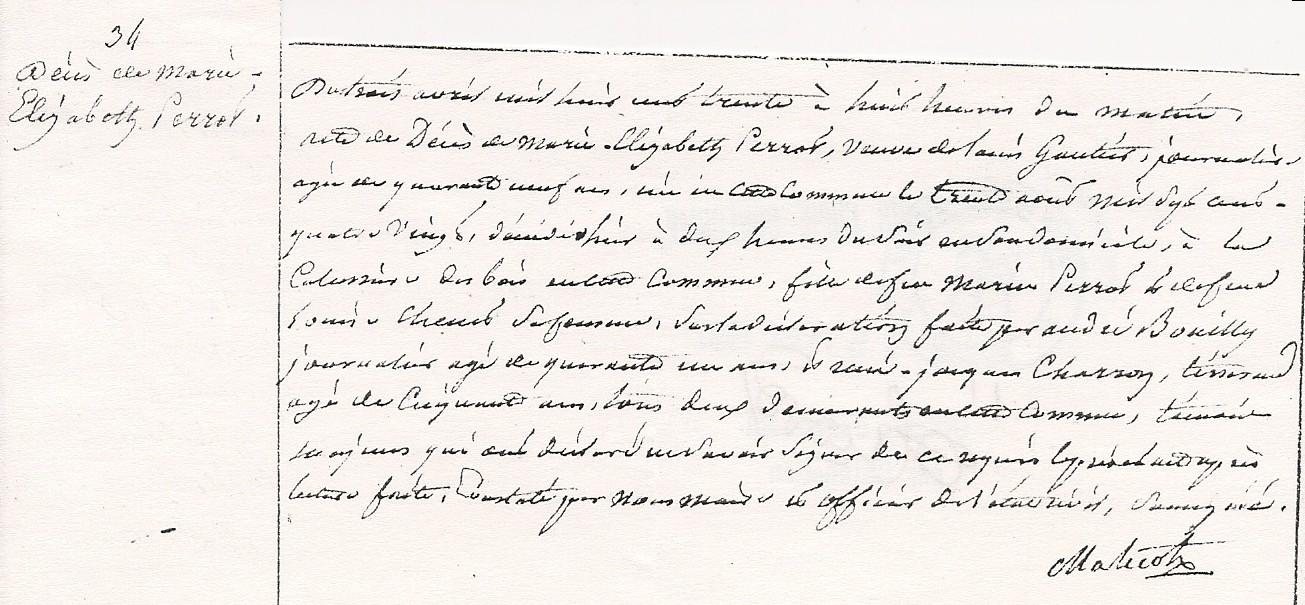 34
Décès de Marie-
Elizabeth Perrot.
Du trois avril mil huit cent trente à huit heures du matin,
acte de Décès de Marie-Elizabeth Perrot, veuve de Louis Gautier, journalier
agée de quarante neuf ans, née en cette Commune le trente août mil sept cent-
quatre vingt, décédée hier à deux heures du soir en son domicile, à la
des bois en cette Commune, fille de feu Marin Perrot et de feue
Louise sa femme, sur la déclaration faite par andré Bouilly
journalier agé de quarante un ans, et rené-jacques Charron, tisserand
agé de Cinquante ans, tous deux demeurants en cette Commune, témoins
majeurs qui ont déclaré ne savoir signer de ce requis le présent acte après
lecture faite, Constaté par nous maire et officier de l'état civil, soussigné.